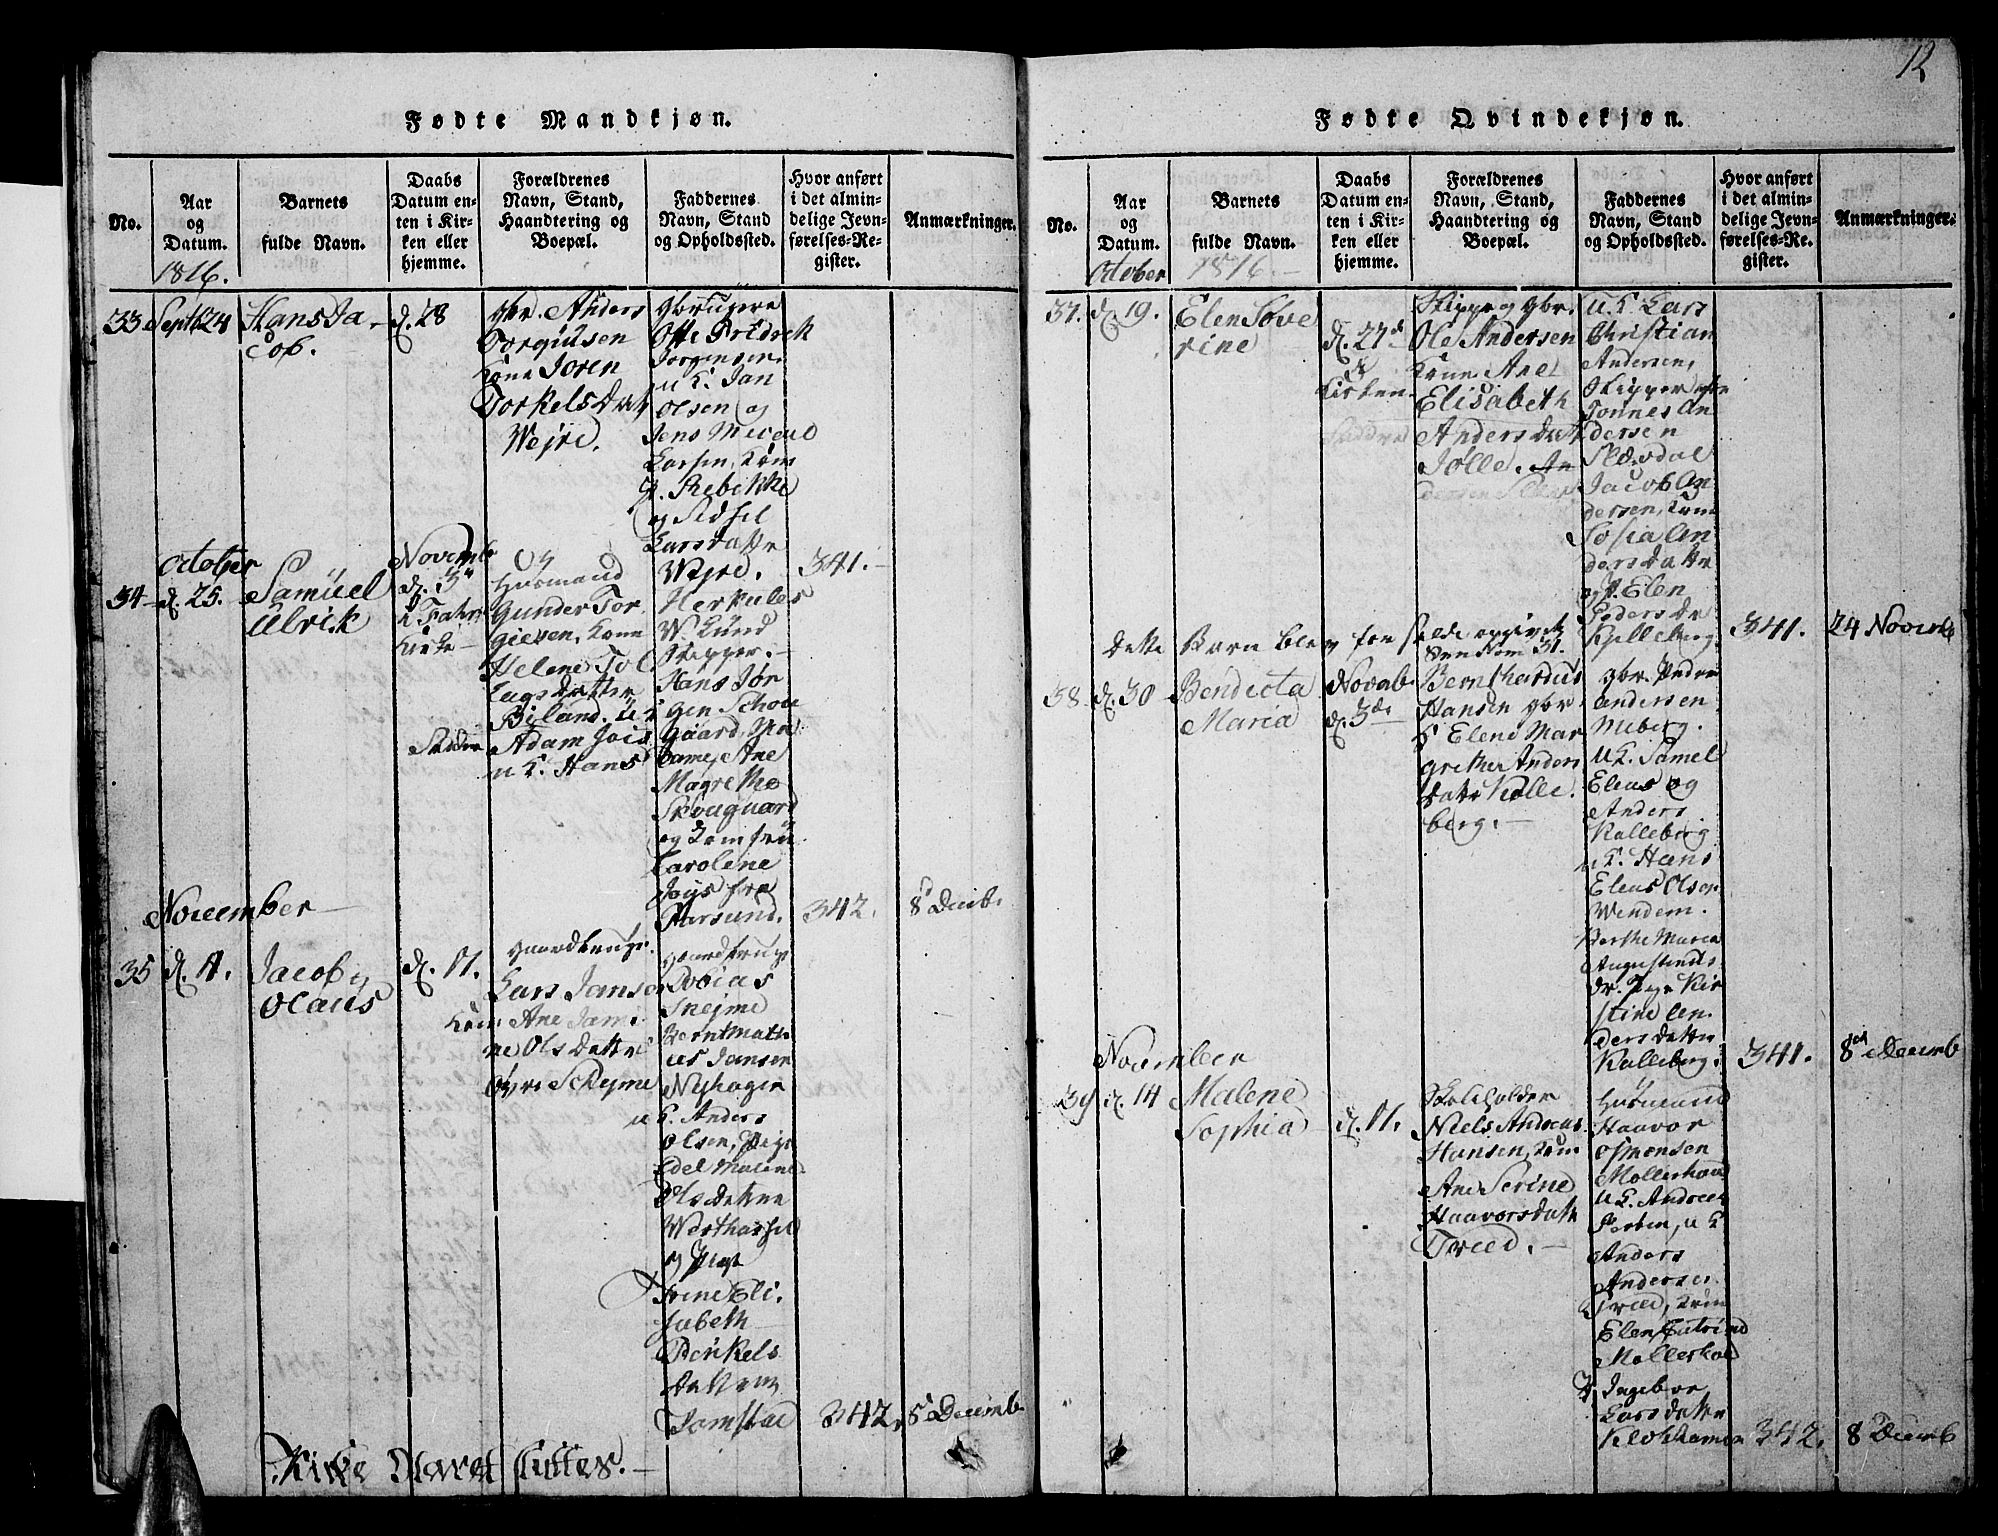 12
Fødte Mandkjøn.
No.
Aar
og
Datum.
1816.
Barnets
fulde Navn.
Daabs
Datum en-
ten i Kir-
ken eller
hjemme.
Forældrenes
Navn, Stand,
Haandtering og
Boepæl.
Faddernes
Navn, Stand
og Opholdssted.
Hvor anført
i det almin-
delige Jevn-
førelses-Re-
gister.
Anmærkninger.
33
Septbr 24
Hans Ja-
cob.
d. 28
gbr. Anders
Torgüsen
Kone Joren
Torkelsdatt
Wejre.
gbrugere
Offe Fridrek
Jørgensen
u K. Jan
Olsen og
Jens Mecael
Larsen, Kone
P. Rebekke
og Sidsel
Larsdatter
Wejre.
341.
October
34
d. 25.
Samüel
Ulrik
Novembr
d. 3
i Fahr
Kirke
Huusmand
Gunder Tor
giesen, Kone
Helene Tol
lagsdatter
Biland. u K
Fadder
Adam Jois
u K. Hans
Herkules
W. Lund
Skipper.
Hans Jør
gen Schou
gaard, Ma
dame Ane
Magrethe
Skougaard
og Jomfru
Carolene
Joys fra
Farsund.
342.
8 Decbr.
November
35
d. 4.
Jacob
Olaus
d. 17.
gaardbruger
Lars Jansen
Kone Ane Jami
ne Olsdatter
Øvre Skejme
gaardbruger
Tobias
Skejme
Berntmath
ies Jansen
Nyhagen
u K. Anders
Olsen, Pige
Edel Malene
Olsdatter
Westhassel
og Pige
Trine Eli
sabeth
Penkels
datter
Jomstad
342.
8 Decemb
Kirke Aaret sluttes.
Fødte Qvindekjøn.
No.
Aar
og
Datum.
October
Barnets
fulde Navn.
1816.
Daabs
Datum en-
ten i Kir-
ken eller
hjemme.
Forældrenes
Navn, Stand,
Haandtering og
Boepæl.
Faddernes
Navn, Stand
og Opholdssted.
Hvor anført
i det almin-
delige Jevn-
førelses-Re-
gister.
Anmærkninger.
37.
d. 19.
Elen Seve
rine
d. 27de
i
Kirken.
Skipper gbr.
Ole Andersen
Kone Ane
Elisabeth
Andersdatt
Jølle.
u K Lars
Christian
Andersen,
Skipper
Tønnes An
dersen
Skævdal
Jacob An
dersen, Kone
Sofia An
dersdatter
og P. Elen
Pedersda
Kjelleberg.
341.
24 Novemb
Dette Barn blev for silde opgivet
38
d. 30
Bendicta
Maria
Novemb
d. 3de
Bernthardus
Hansen gbr
K Elene Mar
grethe Anders
datr Kalle
berg.
gbr. Peder
Andersen
Meberg.
u K. Samel
Eleas og
Anders
Kalleberg
u K. Hans
Eleas Olsen
Wendem.
Berthe Maria
Augustinds
dr. Pige Kir
stine An
dersdatter
Kalleberg.
341.
8de Decemb
November
39
d. 14
Malene
Sophia
d. 17.
Skoleholder
Niels Andreas
Hansen, Kone
Ane Serine
Haavorsdatt
Tveed.
Huusmand
Haavor
Osmonsen
Møllerhaad
u K. Andreas
Persen, u K
Anders
Andersen
Tveed, Kone
Elen Catrine
Møllerhaad
P. Ingebor
Larsdatter
Klokhammer
342.
8 Decemb